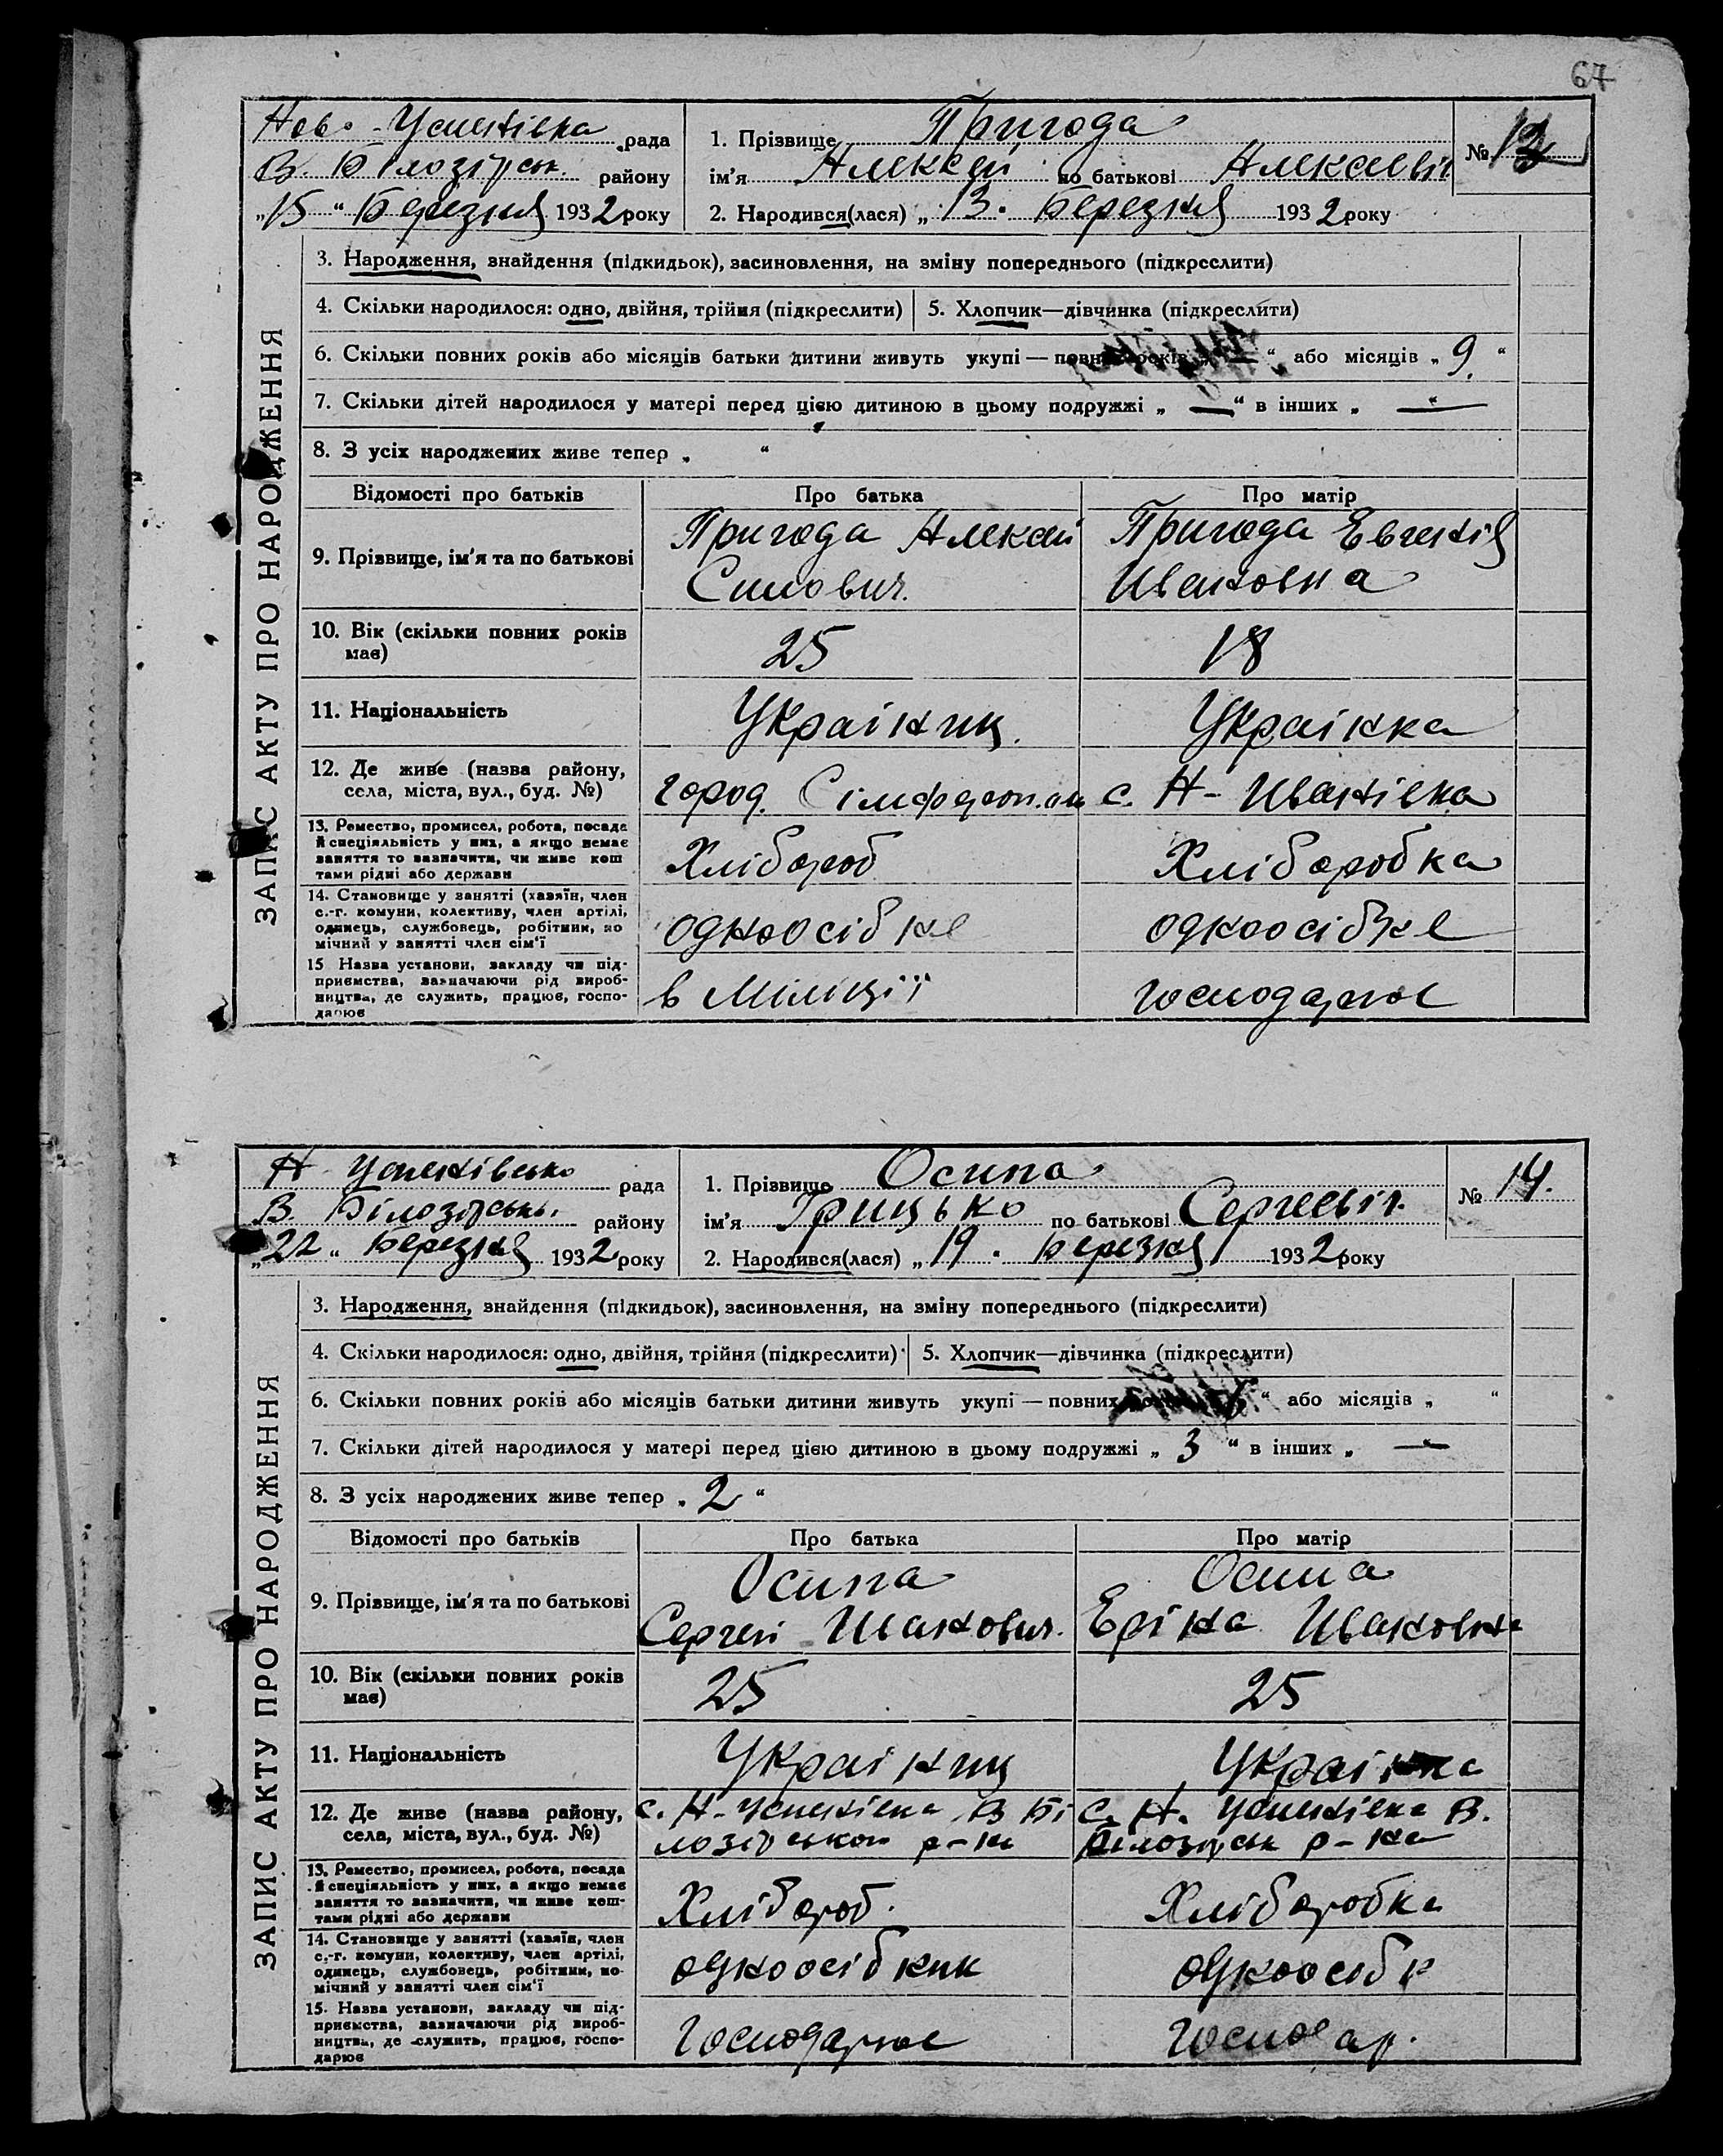 67
Ново-Успенівка рада
В. Білозірськ. району
„15“ Березня 1932 року
1. Прізвище Пригода
ім'я Алексей по батькові Алексеевіч
2. Народився(лася) „13. Березня 1932 року
№ 13
ЗАПИС АКТУ ПРО НАРОДЖЕННЯ
3. Народження, знайдення (підкидьок), засиновлення, на зміну попереднього (підкреслити)
4. Скільки народилося: одно, двійня, трійня (підкреслити)
5. Хлопчик—дівчинка (підкреслити)
6. Скільки повних років або місяців батьки дитини живуть укупі — повних років „ — “ або місяців „ 9. “
7. Скільки дітей народилося у матері перед цією дитиною в цьому подружжі „ — “ в інших „ — “
8. З усіх народжених живе тепер „ “
Відомості про батьків Про батька Про матір
9. Прізвище, ім'я та по батькові
Пригода Алексей
Силович.
Пригода Евгенія
Ивановна
10. Вік (скільки повних років
має)
25
18
11. Національність
Українец.
Українка
12. Де живе (назва району,
села, міста, вул., буд. №)
город.
с. Н- Иванівка
13. Ремество, промисел, робота, посада
й спеціяльність у них, а якщо немає
заняття то зазначити, чи живе кош
тами рідні або держави
Хлібороб
Хліборобка
14. Становище у занятті (хазяїн, член
с.-г. комуни, колективу, член артілі,
одинець, службовець, робітник, по
мічний у занятті член сім'ї
одноосібне
одноосібне
15 Назва установи, закладу чи під-
приємства, зазначаючи рід вироб-
ництва, де служить, працює, госпо-
дарює
в Міліції
господарює
Н Успенівсько рада
В. Білозірськ. району
„22“ Березня 1932 року
1. Прізвище Осипа
ім'я Грицько по батькові Сергеевіч.
2. Народився(лася) „19. Березня 1932 року
№ 14.
ЗАПИС АКТУ ПРО НАРОДЖЕННЯ
3. Народження, знайдення (підкидьок), засиновлення, на зміну попереднього (підкреслити)
4. Скільки народилося: одно, двійня, трійня (підкреслити)
5. Хлопчик—дівчинка (підкреслити)
6. Скільки повних років або місяців батьки дитини живуть укупі — повних “ або місяців „ “
7. Скільки дітей народилося у матері перед цією дитиною в цьому подружжі „ 3 “ в інших „ — “
8. З усіх народжених живе тепер „ 2 “
Відомості про батьків Про батька Про матір
9. Прізвище, ім'я та по батькові
Осипа
Сергей Иванович.
Осипа
Еріна Ивановна
10. Вік (скільки повних років
має)
25
25
11. Національність
Українец
Українка
12. Де живе (назва району,
села, міста, вул., буд. №)
с. Н-Успенівка В Бі
лозірськом р-ні
с. Н. Успенівка В.
Білозірськ р-на
13. Ремество, промисел, робота, посада
й спеціяльність у них, а якщо немає
заняття то зазначити, чи живе кош-
тами рідні або держави
Хлібороб.
Хліборобка
14. Становище у занятті (хазяїн, член
с.-г. комуни, колективу, член артілі,
одинець, службовець, робітник, по-
мічний у занятті член сім'ї
одноосібник
одноосібн
15. Назва установи, закладу чи під-
приємства, зазначаючи рід вироб-
ництва, де служить, працює, госпо-
дарює
Господарює
господар.